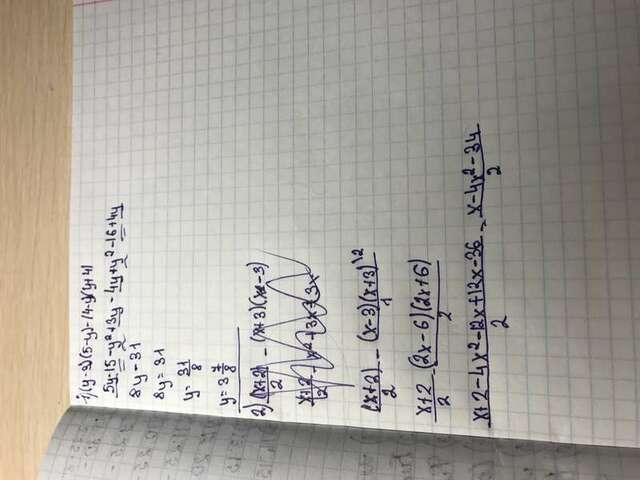 1) (y-3)(5-y)-(4-y)(y+4)
5y-15-y²+3y-4y+y²-16+4y
8y-31
8y=31
y=31/8
y=3 7/8
2) (x+2)/2 - (x+3)(x-3)
(x+2)/2 - (x-3)(x+3)\2/1
x+2/2 - (2x-6)(2x+6)/2
x+2-4x²-12x+12x-36/2 = x-4x²-34/2